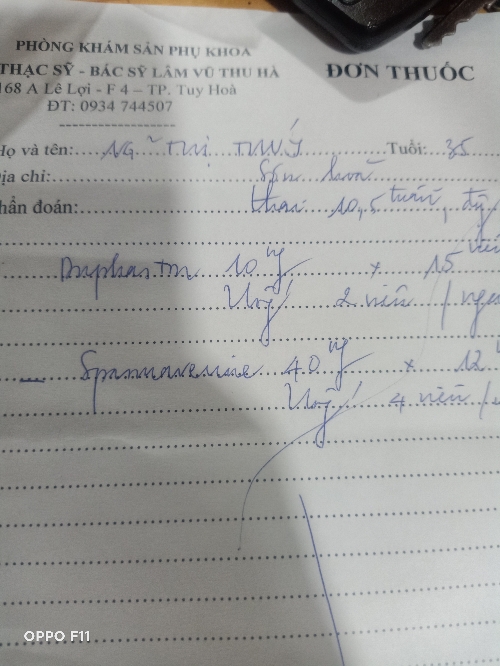 PHÒNG KHÁM SẢN PHỤ KHOA
THẠC SỸ - BÁC SỸ LÂM VŨ THU HÀ
168 A Lê Lợi - F 4 – TP. Tuy Hoà
ĐT: 0934 744507
ĐƠN THUỐC
Họ và tên: Thị Tuổi: 35
Địa chỉ: Sơn
hẩn đoán: thai 10,5 tuần,
Duphaston 10 mg x 15 viên
Uống 2 viên /
Spasmaverine 40 mg x 12
Uống 4 viên /
OPPO F11